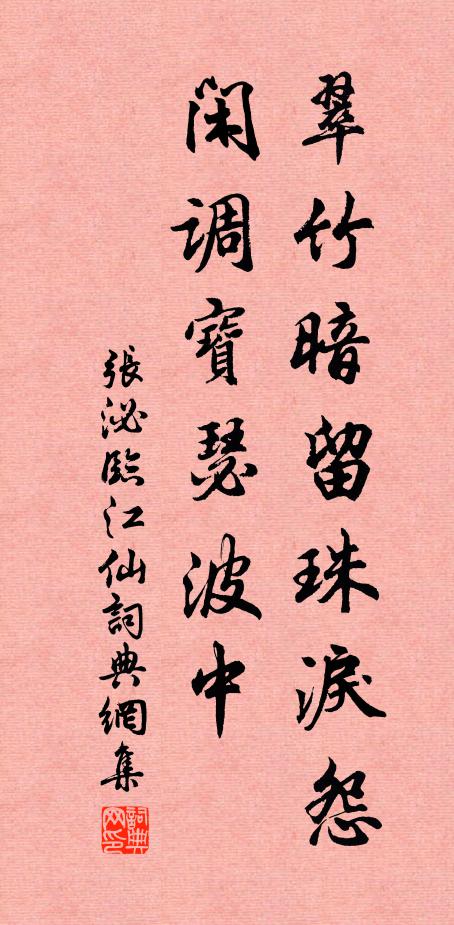 翠竹暗留珠淚怨
閑調寶瑟波中
張泌臨江仙詞典網集
詞典网印